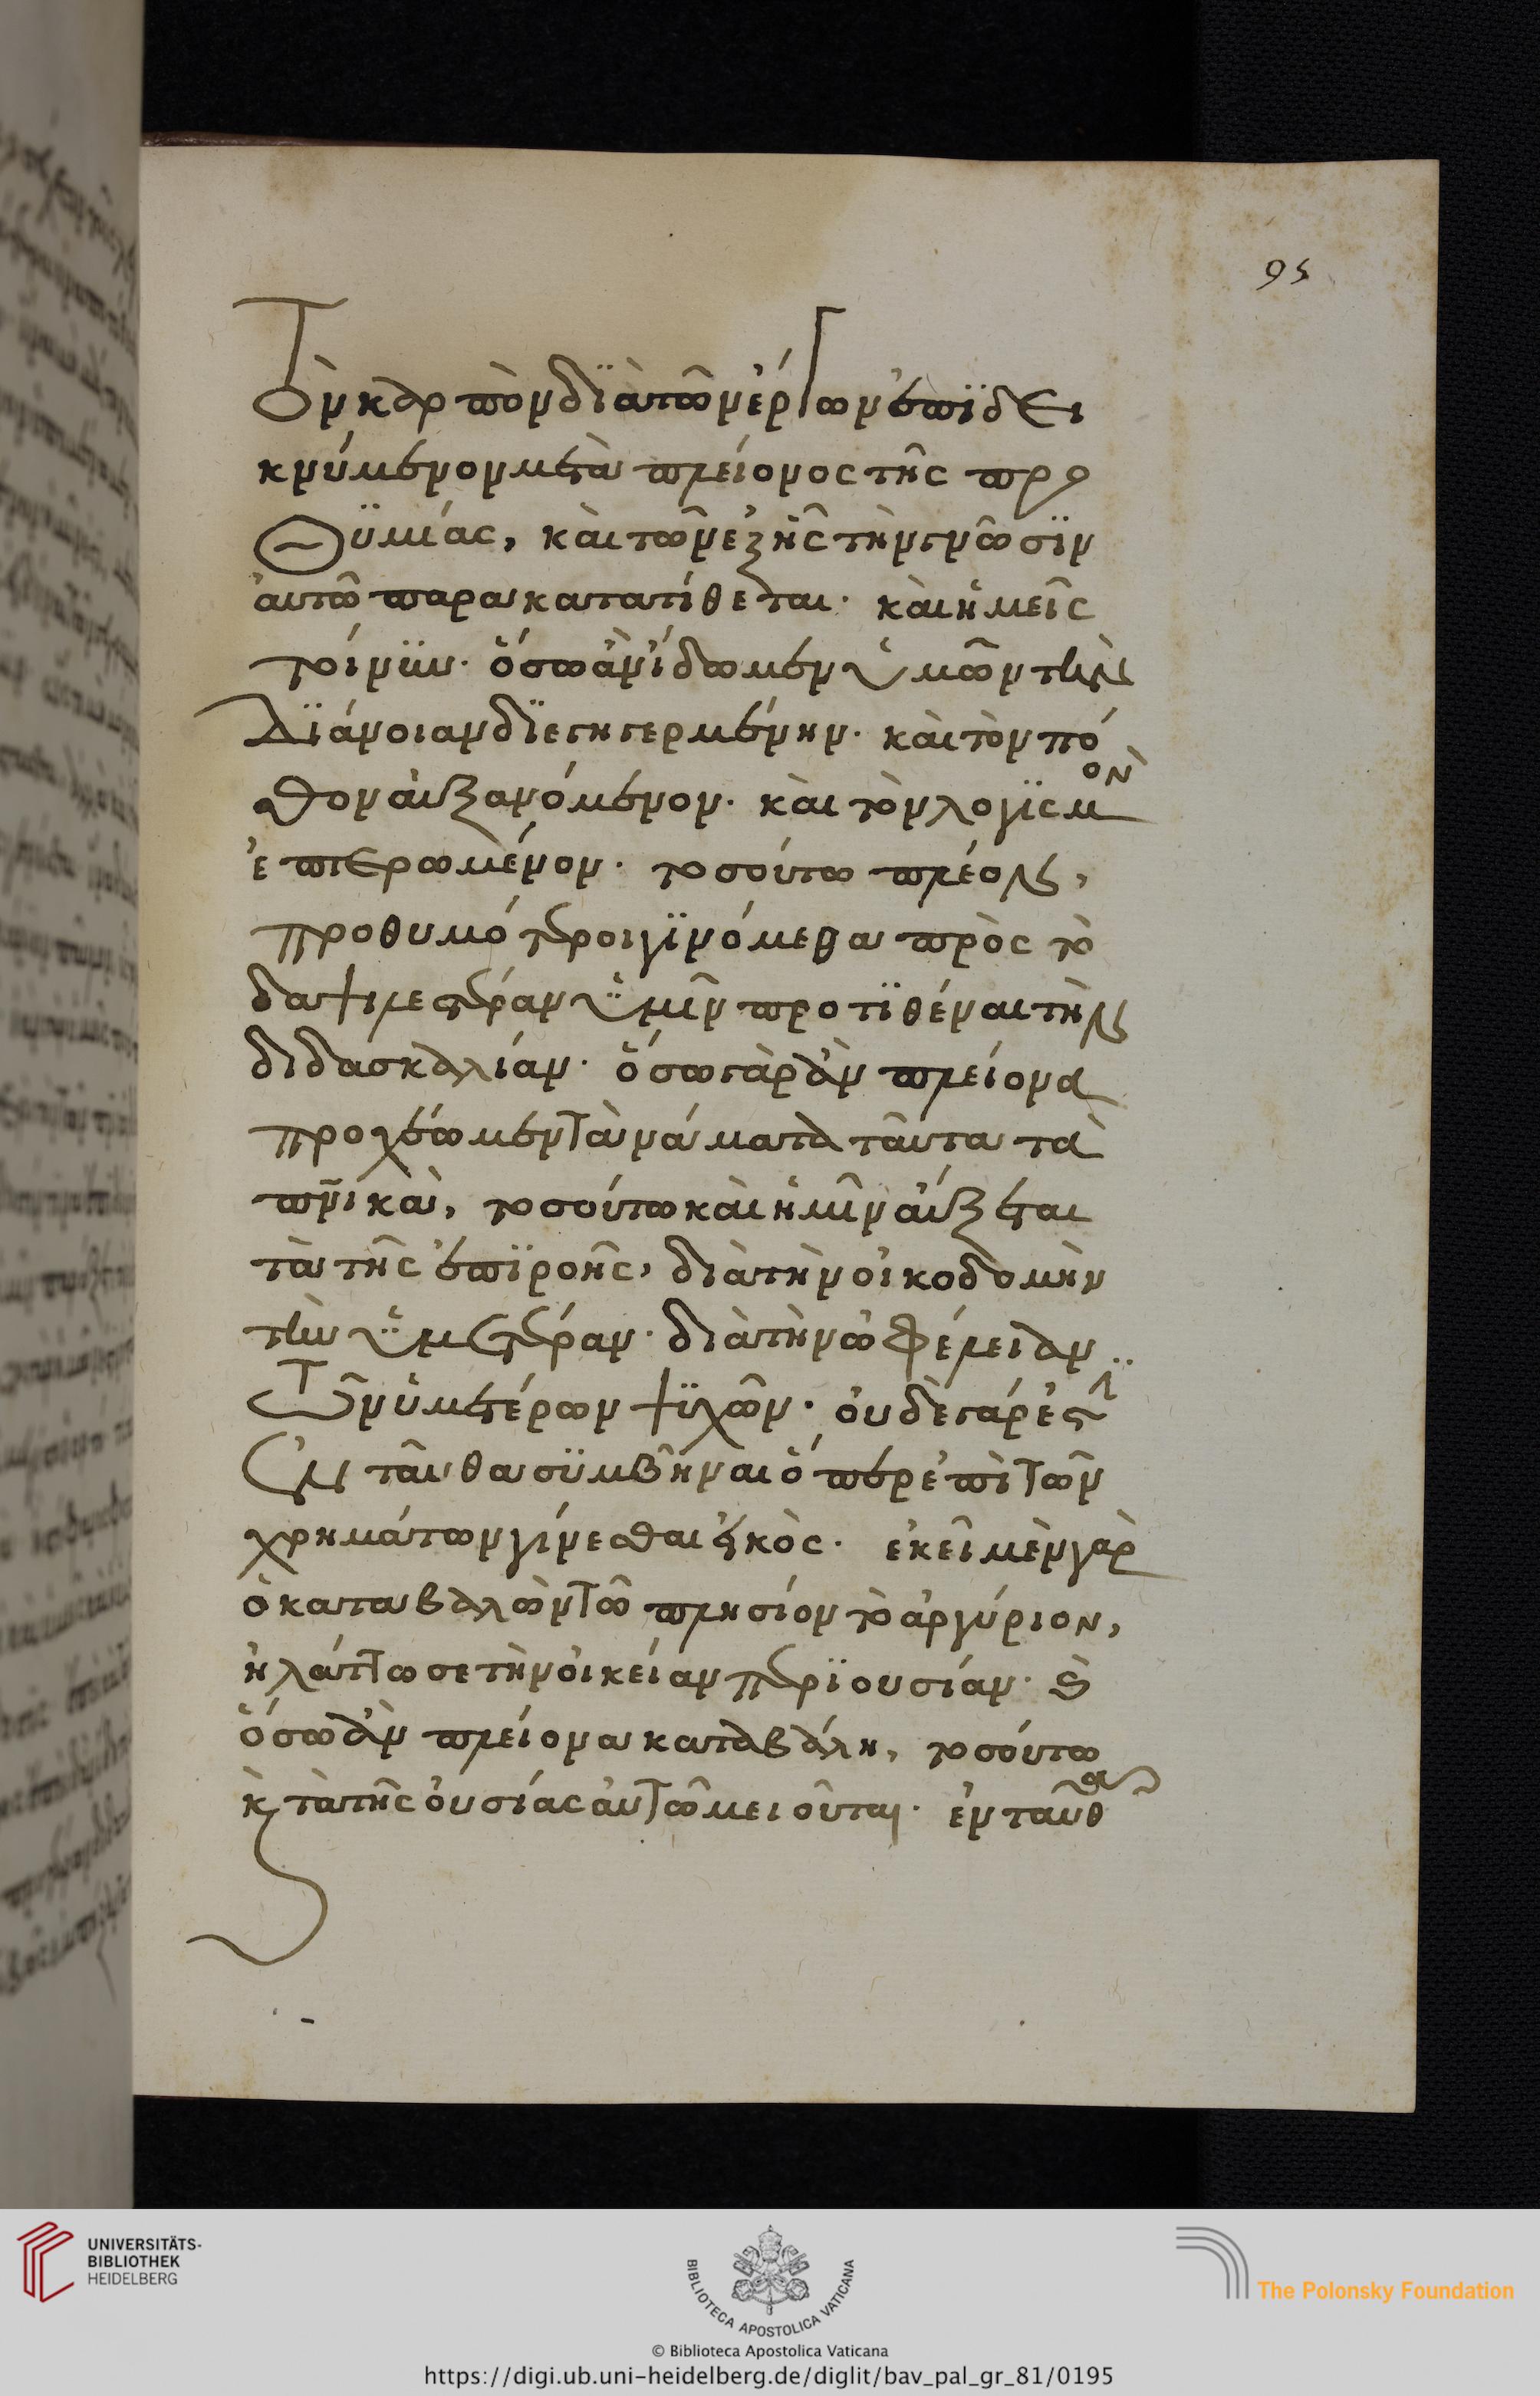 95
Τὸν καρπὸν διὰ τῶν ἔργων ἐπιδει
κνύμενον μετὰ πλείονος τῆς προ
θυμίας, καὶ τῶν ἑξῆς τὴν γνῶσιν
αὐτῶ παρακατατίθεται· καὶ ἡμεῖς
τοίνυν· ὅσω ἂν ἴδωμεν ὑμῶν τὴν
διάνοιαν διεγηγερμένην· καὶ τὸν πό
θον αὐξανόμενον· καὶ τὸν λογισμὸν
ἐπτερωμένον· τοσούτω πλέον,
προθυμότεροι γινόμεθα πρὸς τὸ
δαψιλεστέραν ὑμῖν προτιθέναι τὴν
διδασκαλίαν· ὅσω γὰρ ἂν πλείονα
προχέωμεν τὰ νάματα ταῦτα τὰ
πνικὰ, τοσούτω καὶ ἡμῖν αὔξεται
τὰ τῆς ἐπιροῆς, διὰ τὴν οἰκοδομὴν
τὴν ὑμετέραν· διὰ τὴν ὠφέλειαν
τῶν ὑμετέρων ψυχῶν· οὐδὲ γάρ ἐστιν
ἐνταῦθα συμβῆναι ὅπερ ἐπὶ τῶν
χρημάτων γίνεσθαι εἰκὸς· ἐκεῖ μὲν γὰρ
ὁ καταβαλὼν τῶ πλησίον τὸ ἀργύριον,
ἠλάττωσε τὴν οἰκείαν περιουσίαν· καὶ
ὅσω ἂν πλείονα καταβάλη, τοσούτω
καὶ τὰ τῆς οὐσίας αὐτῶ μειοῦται· ἐνταῦθα
UNIVERSITÄTS-
BIBLIOTHEK
HEIDELBERG
BIBLIOTECA APOSTOLICA VATICANA
The Polonsky Foundation
© Biblioteca Apostolica Vaticana
https://digi.ub.uni-heidelberg.de/diglit/bav_pal_gr_81/0195